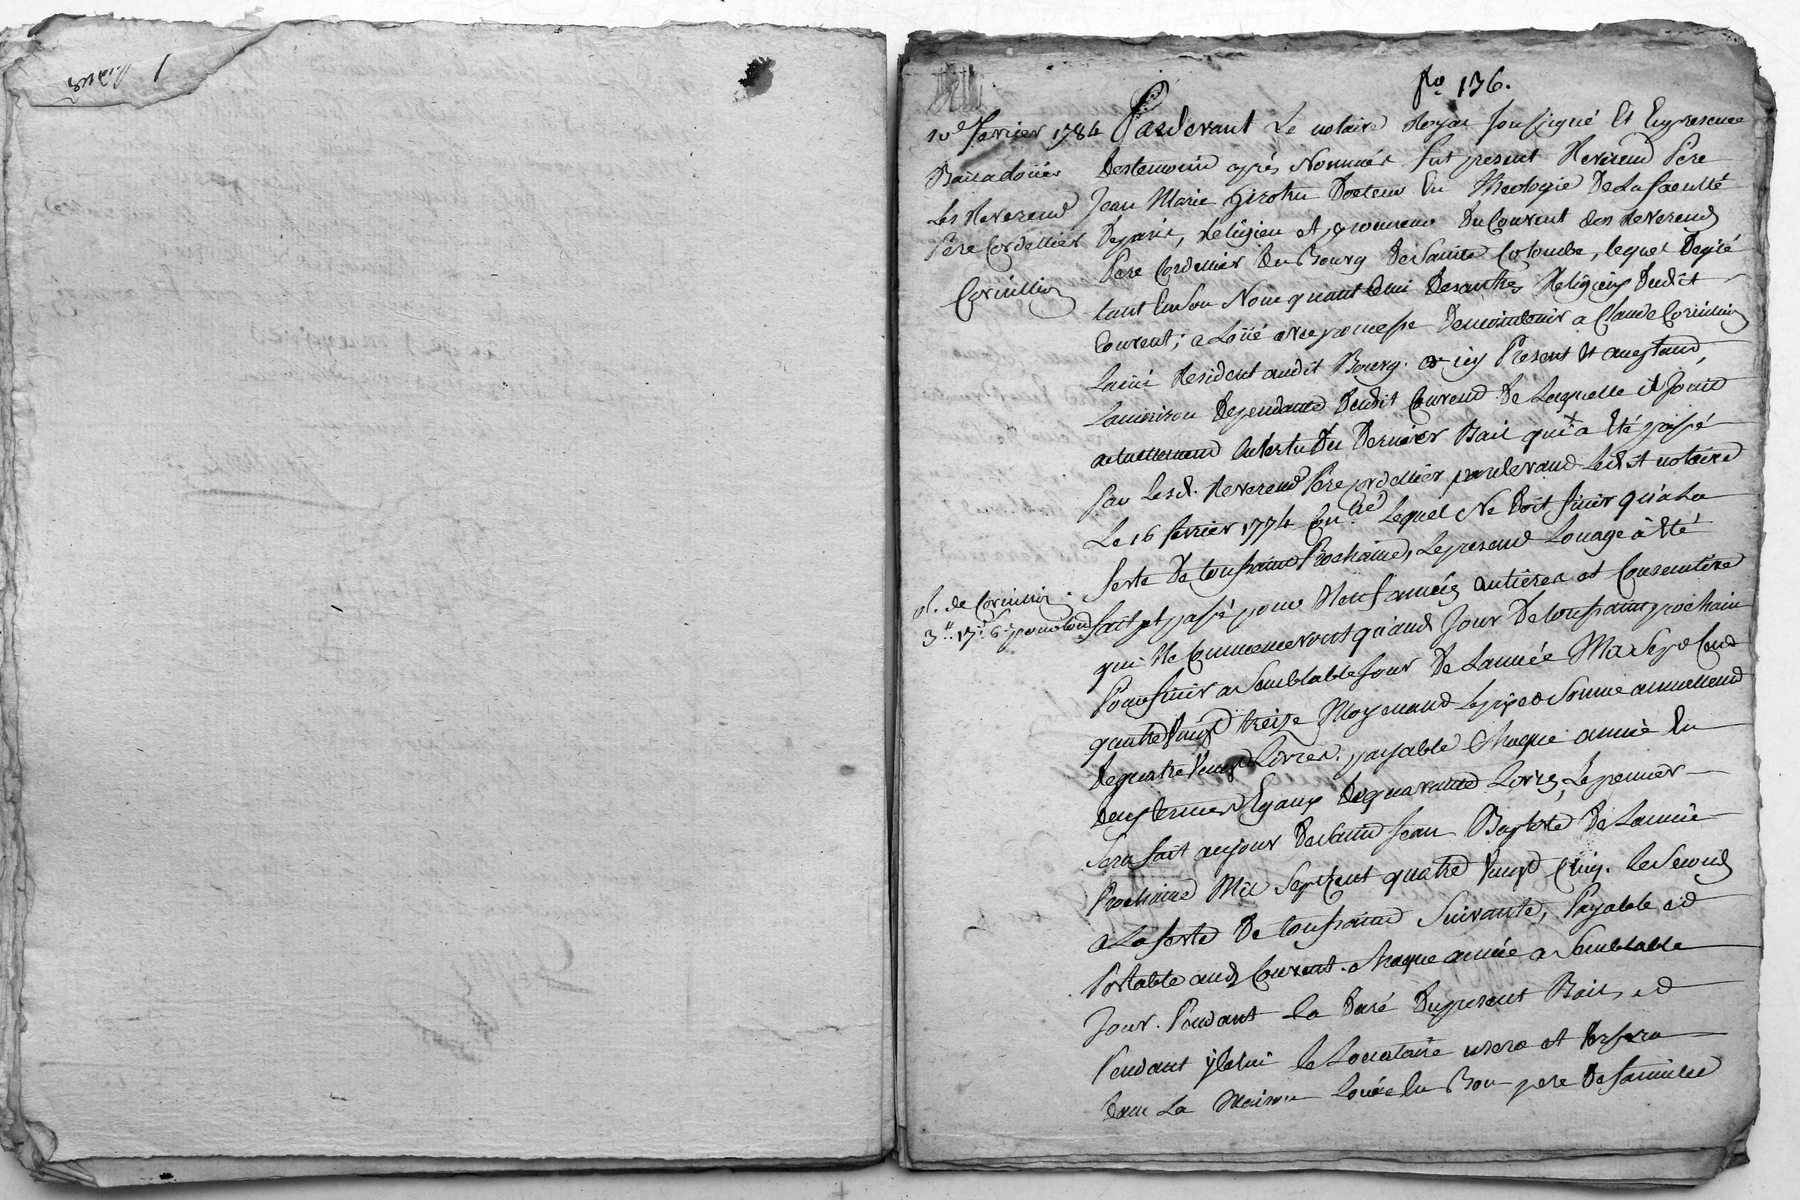 fo. 136.
10e fevrier 1784
Bail a loüer
Les Reverend
Pere Cordellier
Cornillion
Pardevant Le notaire Royal soussigné Et En presence
Des temoins après Nommés fut present Reverend Pere
Jean Marie Docteur En theologie De La faculté
De paris, Religieu et procureur Du Couvent des Reverends
Pere Cordellier Du Bourg De Sainte Colombe, lequel De gré
tant En Son Nom qu'au Nom Des autres Religieux Dudit
Couvent; a Loüé avec promesse De maintenir a Claude Cornillion
Lainé Resident audit Bourg. icy Present Et acceptant,
La maison Dependante Dudit Couvent De Laquelle il Jouit
actuellement En Vertu Du Dernier Bail qui a Eté passé
Par Lesd. Reverend Pere Cordellier pardevant Ledit notaire
Le 16 fevrier 1774 Con.lé Lequel Ne Doit finir qu'a La
feste De toussaint Prochaine, Le present Louage à Eté
fait et passé pour Neuf années Entieres et Consecutive
qui Ne Commenceront qu'aud. Jour De toussaint prochain
Pour finir a Semblable Jour De L'année Mil Sept Cent
quatre Vingt treize Moyenand Le prix et Somme annuellement
De quatre Vingt Livres. payable Chaque année En
Deux termes Egaux De quarante Livres, Le premier
Sera fait au jour De Saint Jean Baptiste De L'année
Prochaine Mil Sept Cent quatre Vingt Cinq. Le Second
a La feste De toussaint Suivante, Payable et
Portable aud. Couvent. Chaque année a Semblable
Jour. Pendant La Duré Du present Bail, et
Pendant Iceluy Le Locataire usera et
Dans La Maison Louée En Bon pere De famille
de Cornillion
3# 17s 6d pour